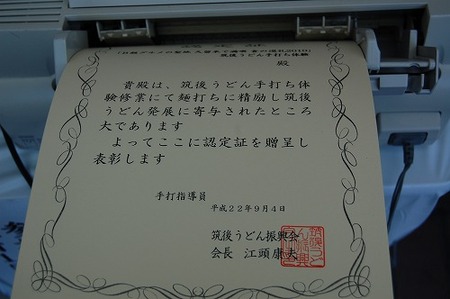 筑後うどん手打ち体験
殿
貴殿は、筑後うどん手打ち体
験修業にて麺打ちに精励し筑後
うどん発展に寄与されたところ
大であります
よってここに認定証を贈呈し
表彰します
手打指導員
平成22年9月4日
筑後うどん振興会
会長 江頭康夫